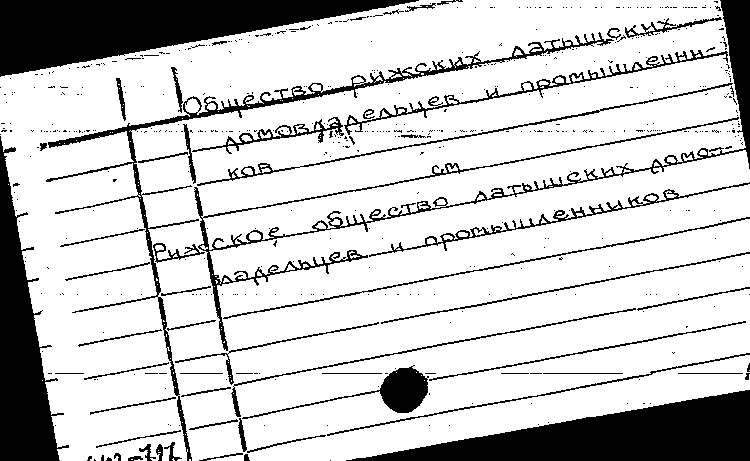 Общество рижских латышских
домовладельцев и промышленни-
ков
см
Рижское общество латышских домо-
владельцев и промышленников